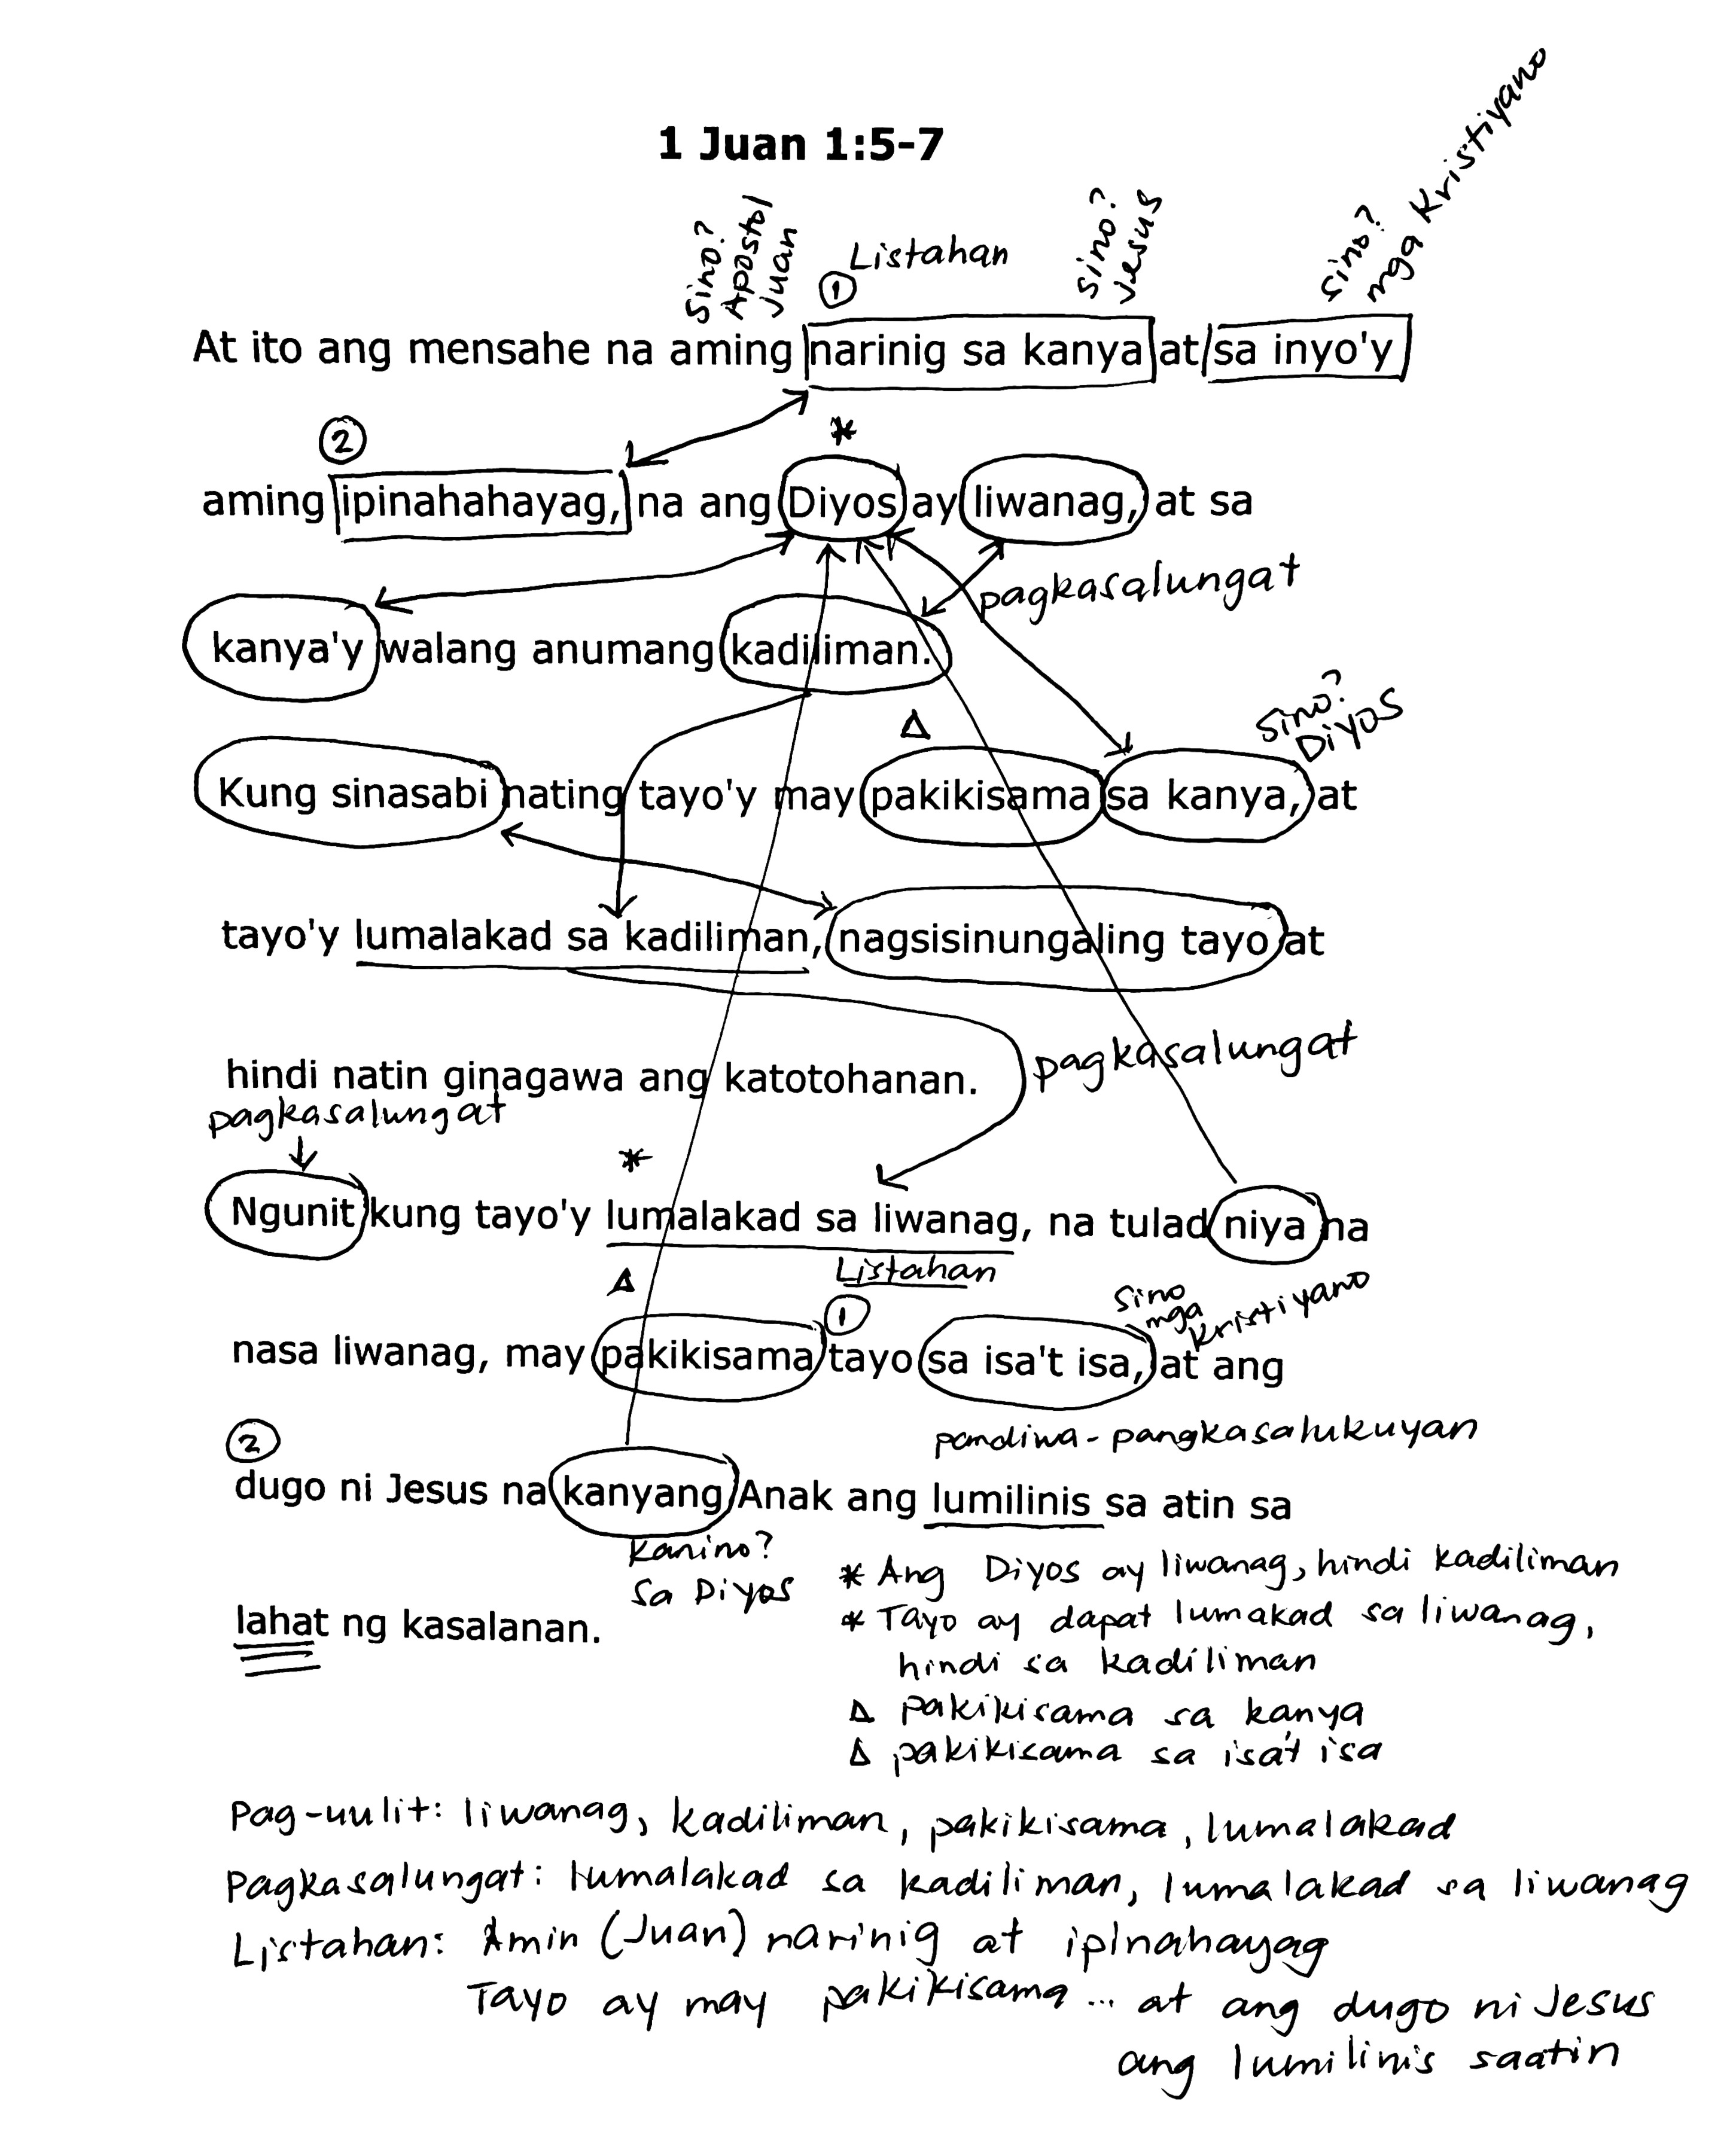 1 Juan 1:5-7
Sino?
Apostol
Juan
Listahan
1
Sino?
Jesus
Sino?
mga Kristiyano
At ito ang mensahe na aming narinig sa kanya at sa inyo'y
2
*
aming ipinahahayag, na ang Diyos ay liwanag, at sa
pagkasalungat
kanya'y walang anumang kadiliman.
Δ
Sino?
Diyos
Kung sinasabi nating tayo'y may pakikisama sa kanya, at
tayo'y lumalakad sa kadiliman, nagsisinungaling tayo at
pagkasalungat
hindi natin ginagawa ang katotohanan.
pagkasalungat
*
Ngunit kung tayo'y lumalakad sa liwanag, na tulad niya na
Δ
Listahan
1
Sino
mga
Kristiyano
nasa liwanag, may pakikisama tayo sa isa't isa, at ang
2
pandiwa - pangkasalukuyan
dugo ni Jesus na kanyang Anak ang lumilinis sa atin sa
Kanino?
Sa Diyos
lahat ng kasalanan.
* Ang Diyos ay liwanag, hindi kadiliman
* Tayo ay dapat lumakad sa liwanag,
hindi sa kadiliman
Δ pakikisama sa kanya
Δ pakikisama sa isa't isa
Pag-uulit: liwanag, kadiliman, pakikisama, lumalakad
Pagkasalungat: lumalakad sa kadiliman, lumalakad sa liwanag
Listahan: Amin (Juan) narinig at ipinahayag
Tayo ay may pakikisama... at ang dugo ni Jesus
ang lumilinis saatin